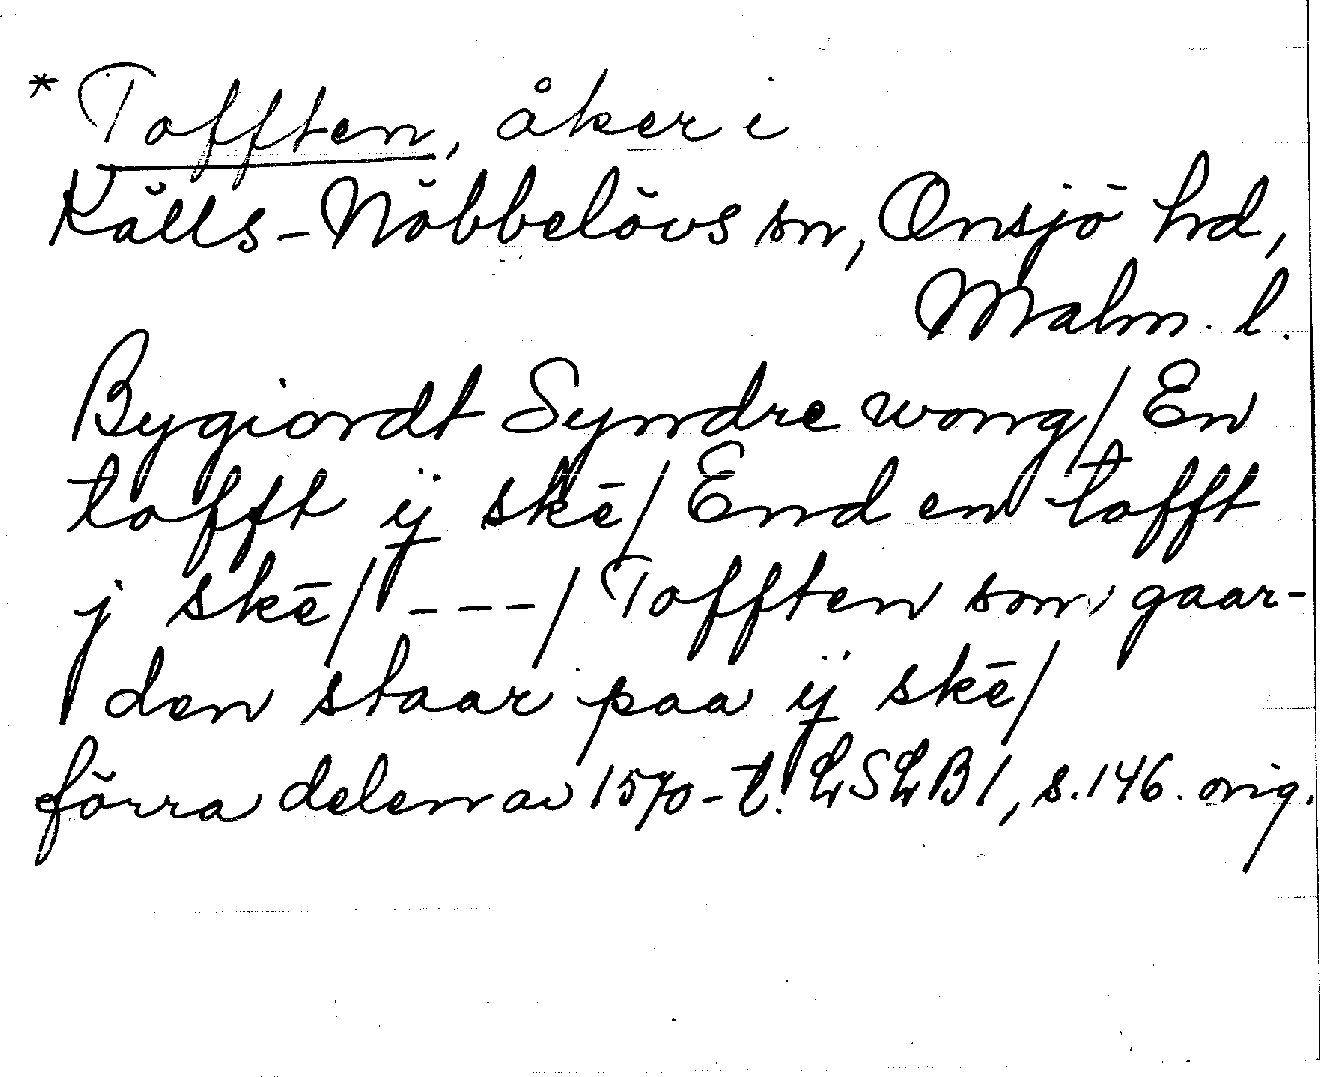 * Tofften, åker i
Källs-Nöbbelövs sn, Onsjö hd,
Malm. l.
Bygiordt Syndre wong/ En
tofft ij skē/ End en tofft
j skē/ --- / Tofften som gaar-
den staar paa ij skē/
förra delen av 1570-t. LSLB 1, s. 146. orig.